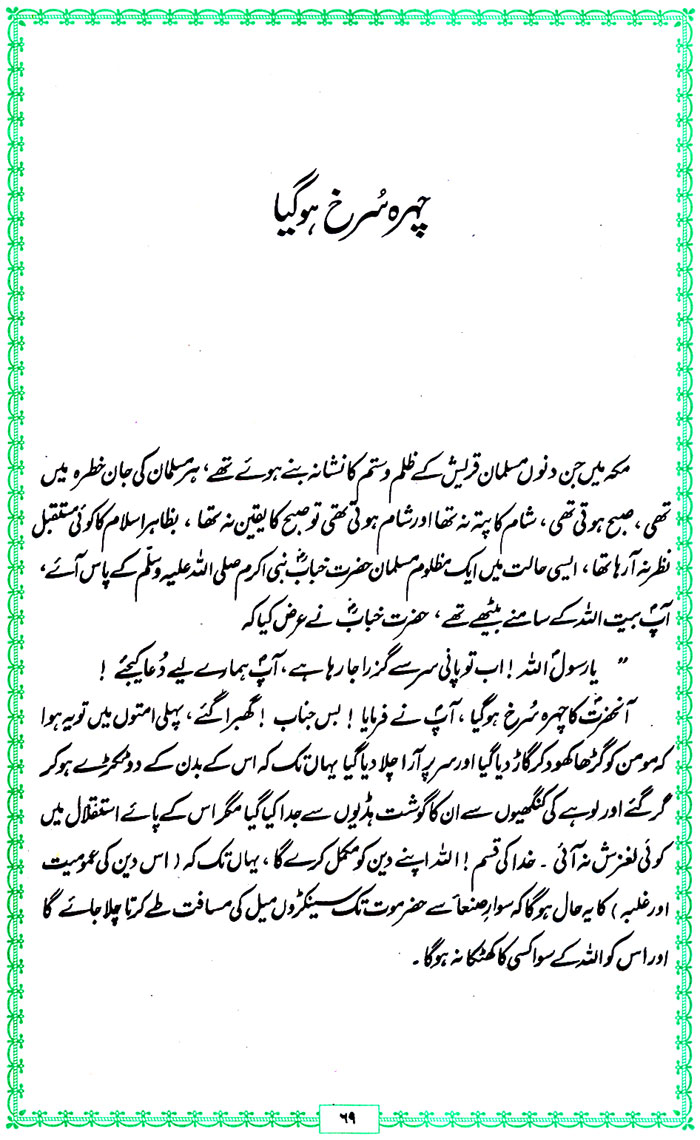 چہرہ سُرخ ہوگیا
مکہ میں جن دنوں مسلمان قریش کے ظلم وستم کا نشانہ بنے ہوئے تھے، ہر مسلمان کی جان خطرہ میں
تھی، صبح ہوتی تھی، شام کا پتہ نہ تھا اور شام ہوتی تھی تو صبح کا یقین نہ تھا، بظاہر اسلام کا کوئی مستقبل
نظر نہ آرہا تھا، ایسی حالت میں ایک مظلوم مسلمان حضرت خبابؓ نبی اکرم صلی اللہ علیہ وسلّم کے پاس آئے،
آپؐ بیت اللہ کے سامنے بیٹھے تھے، حضرت خبابؓ نے عرض کیا کہ
" یا رسولؐ اللہ! اب تو پانی سر سے گزرا جا رہا ہے، آپؐ ہمارے لیے دُعا کیجئے!
آنحضرتؐ کا چہرہ سُرخ ہوگیا، آپؐ نے فرمایا! بس جناب! گھبرا گئے، پہلی امتوں میں تو یہ ہوا
کہ مومن کو گڑھا کھود کر گاڑ دیا گیا اور سر پر آرا چلا دیا گیا یہاں تک کہ اس کے بدن کے دو ٹکڑے ہو کر
گر گئے اور لوہے کی کنگھیوں سے ان کا گوشت ہڈیوں سے جدا کیا گیا مگر اس کے پائے استقلال میں
کوئی لغزش نہ آئی۔ خدا کی قسم! اللہ اپنے دین کو مکمل کرے گا، یہاں تک کہ (اس دین کی عمومیت
اور غلبہ) کا یہ حال ہوگا کہ سوار صنعأ سے حضرموت تک سینکڑوں میل کی مسافت طے کرتا چلا جائے گا
اور اس کو اللہ کے سوا کسی کا کھٹکا نہ ہوگا۔
۶۹